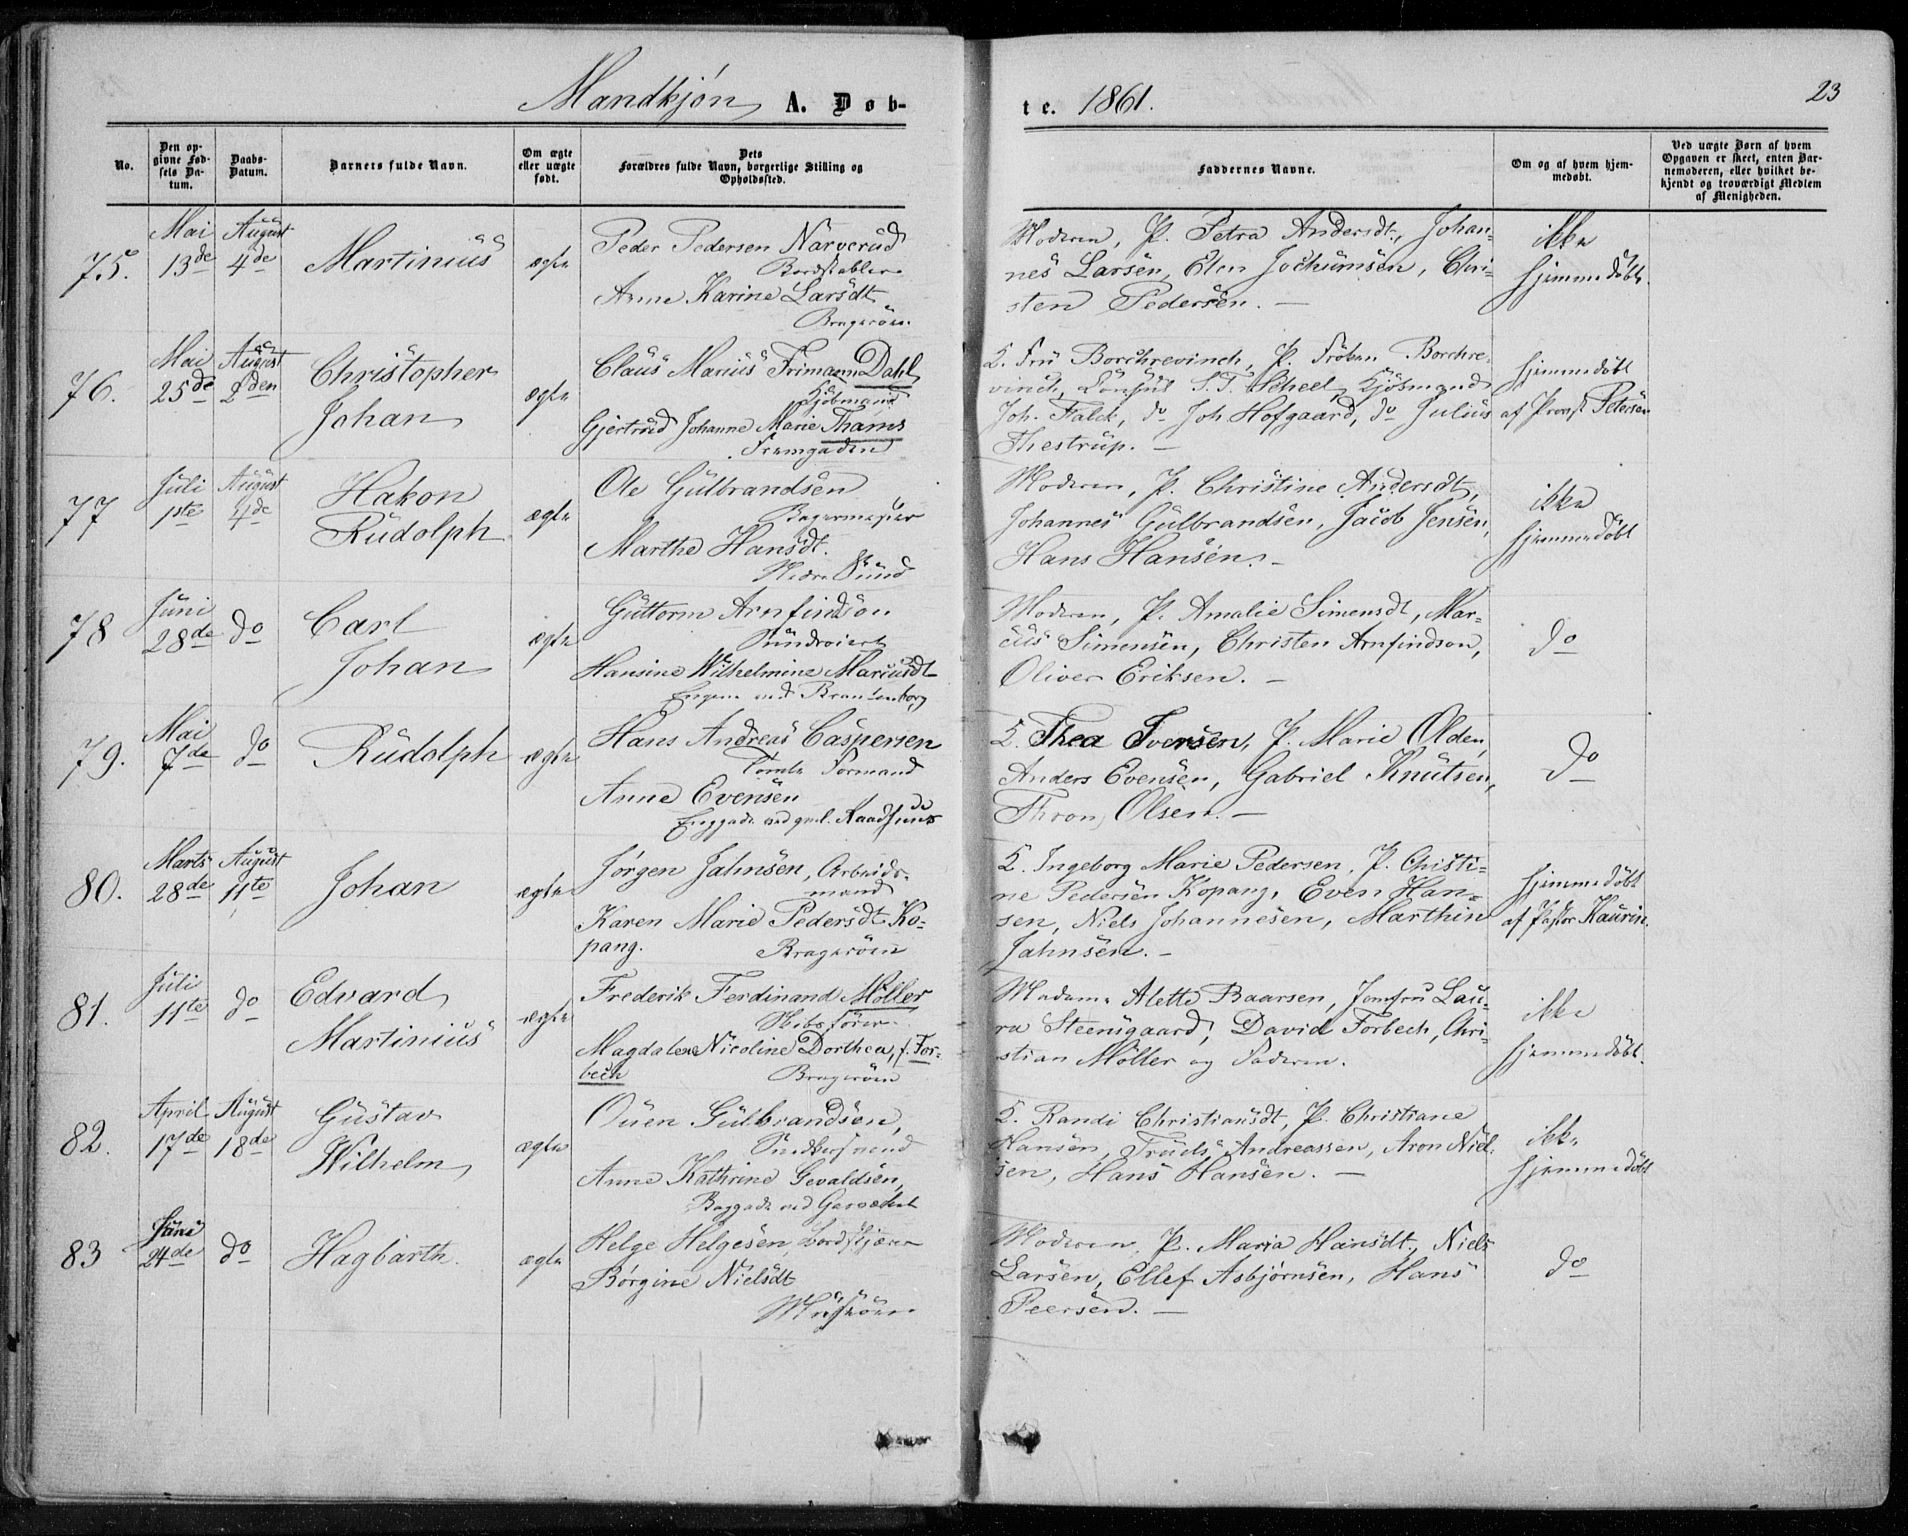 Mandkjøn A. Døb-
te. 1861.
23
No.
Den op-
givne Fød-
sels Da-
tum.
Daabs-
Datum.
Barnets fulde Navn.
Om ægte
eller uægte
født.
Dets
Forældres fulde Navn, borgerlige Stilling og
Opholdssted.
Faddernes Navne.
Om og af hvem hjem-
medøbt.
Ved uægte Børn af hvem
Opgaven er skeet, enten Bar-
nemoderen, eller hvilket be-
kjendt og troværdigt Medlem
af Menigheden.
75. Mai 13de August 4de Martinius ægte
Peder Pedersen Narverud
Bordstabler
Anne Karine Larsdt.
Bragerøen
Moderen, P. Petra Andersdt., Johan-
nes Larsen, Elen Jochumsen, Chri-
sten Pedersen. —
ikke
hjemmedøbt.
76. Mai 25de August 2den Christopher
Johan ægte
Claus Marius Frimann Dahl
Kjøbmand
Gjertrud Johanne Marie Thams
Fremgaden
Q. Fru Borchrevinch, P. Frøken Borchre-
vinch, Consul S.T. Scheel, Kjøbmand
Joh. Falck, do Joh Hofgaard, do Julius
Thestrup. —
hjemmedøbt
af Provst Petersen
77 Juli 1ste August 4de Hakon
Rudolph ægte
Ole Gulbrandsen
Bagermester
Marthe Hansdt.
Nedre Sund
Moderen, P. Christine Andersdt,
Johannes Gulbrandsen, Jacob Jensen,
Hans Hansen. —
ikke
hjemmedøbt
78 Juni 28de do Carl
Johan ægte
Guttorm Arnfindson
Hansine Wilhelmine Mariusdt
Engene ved Brantenborg
Moderen, P. Amalie Simensdt, Mar-
cus Simensen, Christen Arnfindson,
Oliver Eriksen. —
do
79. Mai 7de do Rudolph ægte
Hans Andreas Caspersen
Tomte Formand
Anne Evensen
Enggade ved gml. Raadhuus
Q. Thea Iversen, P. Marie Olden,
Anders Evensen, Gabriel Knutsen,
Thron Olsen. —
do
80. Marts 28de August 11te Johan ægte
Jørgen Jahnsen, Arbeids-
mand
Karen Marie Pedersdt Ko-
pang. Bragerøen
Q. Ingeborg Marie Pedersen, P. Christi-
ne Pedersen Kopang, Even Han-
sen, Niels Johannesen, Marthin
Jahnsen. —
hjemmedøbt
af Pastor Kaurin.
81. Juli 11te do Edvard
Martinius ægte
Frederik Ferdinand Møller
Skibsfører
Magdalene Nicoline Dorthea, f. For-
bech Bragerøen
Madame Alette Baarsen, Jomfru Lau-
ra Steensgaard, David Forbech, Chri-
stian Møller og Faderen.
ikke
hjemmedøbt.
82. April 17de August 18de Gustav
Wilhelm ægte
Ouen Gulbrandsen,
Anne Kathrine Gevaldsen,
Baggade ved Gasværket
Q. Randi Christiansdt, P. Christiane
Hansen, Truels Andreassen, Aron Niel-
sen, Hans Hansen. —
ikke
hjemmedøbt
83 Juni 24de do Hagbarth. ægte
Helge Helgesen, Bordskjærer
Børgine Nielsdt
Moderen, P. Maria Hansdt., Niels
Larsen, Ellef Asbjørnsen, Hans
Peersen. —
do